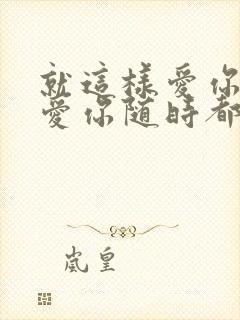 就這樣愛你
愛你随時都
嵐皇